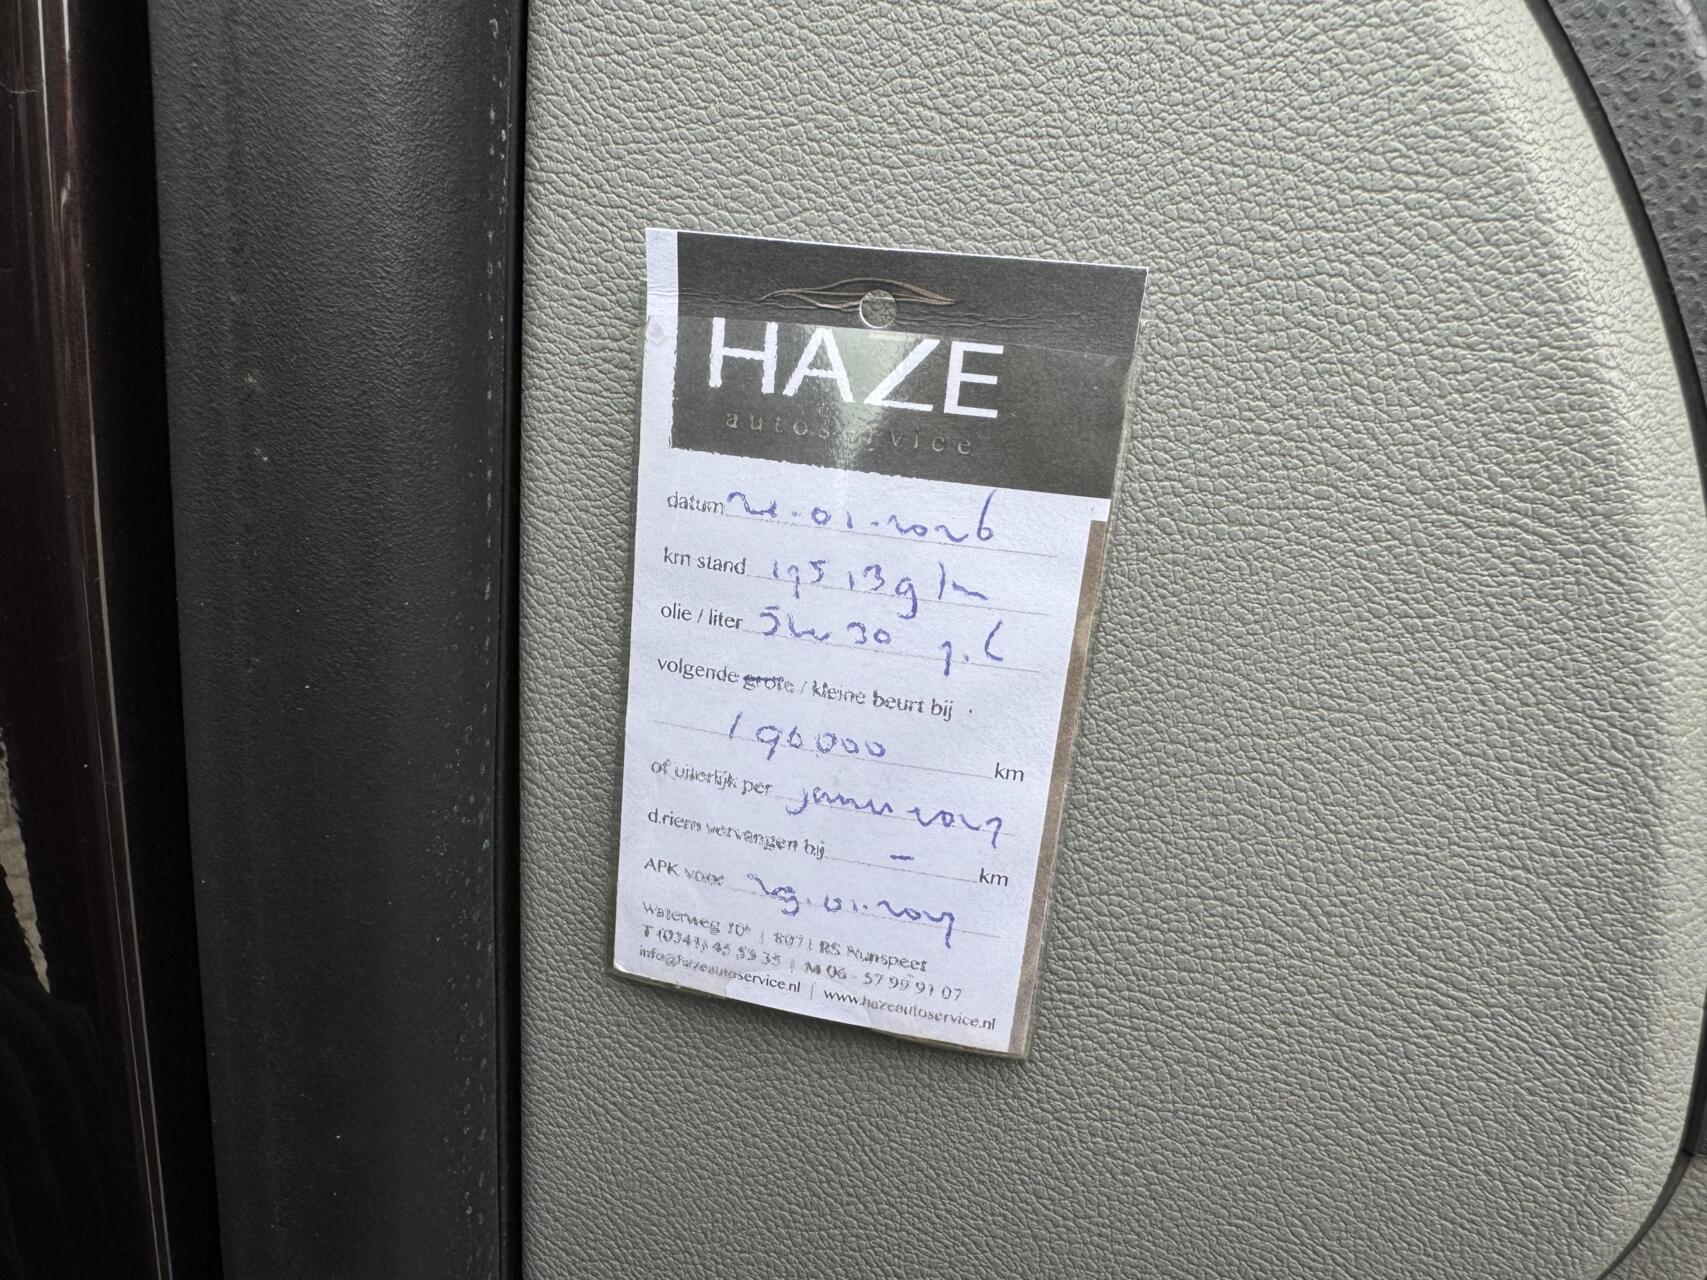 HAZE
autoservice
datum 21.01.2026
km stand 175139 km
olie / liter 5w30
volgende grote / kleine beurt bij
190000 km
of uiterlijk per 2027
d.riem vervangen bij - km
APK voor 29.01.2027
Waterweg 10 | 8071 RS Nunspeet
T (0341) 45 53 35 | M 06 - 57 99 91 07
info@hazeautoservice.nl | www.hazeautoservice.nl